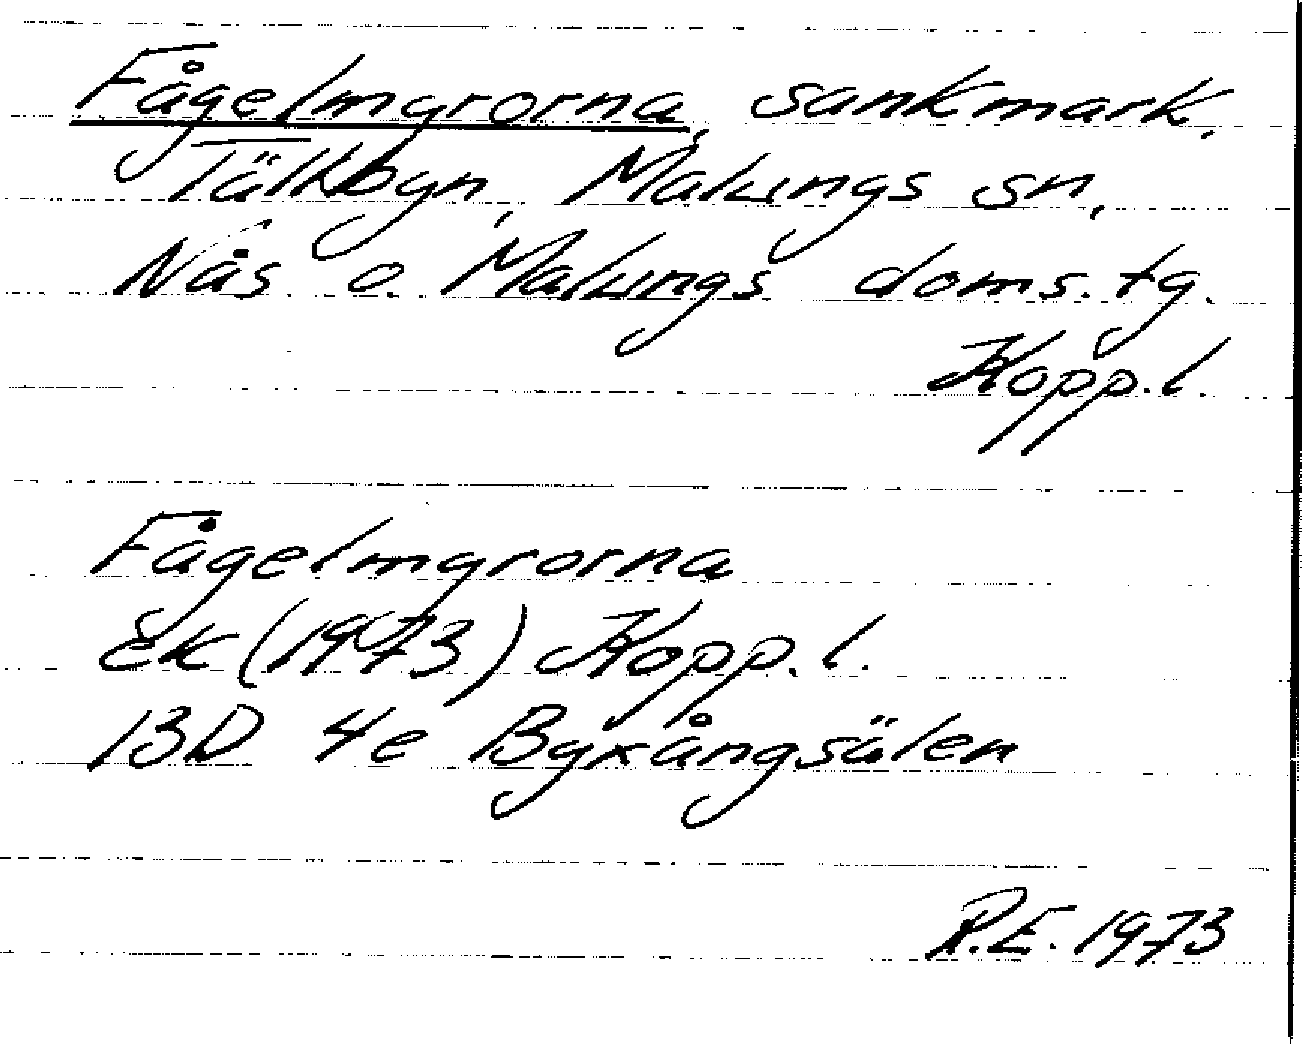 Fågelmyrorna, sankmark.
Tälkbyn, Malungs sn,
Nås o. Malungs doms. tg.
Kopp.l.
Fågelmyrorna
Ek (1973) Kopp. l.
13D 4e Byxångsälen
R.E. 1973